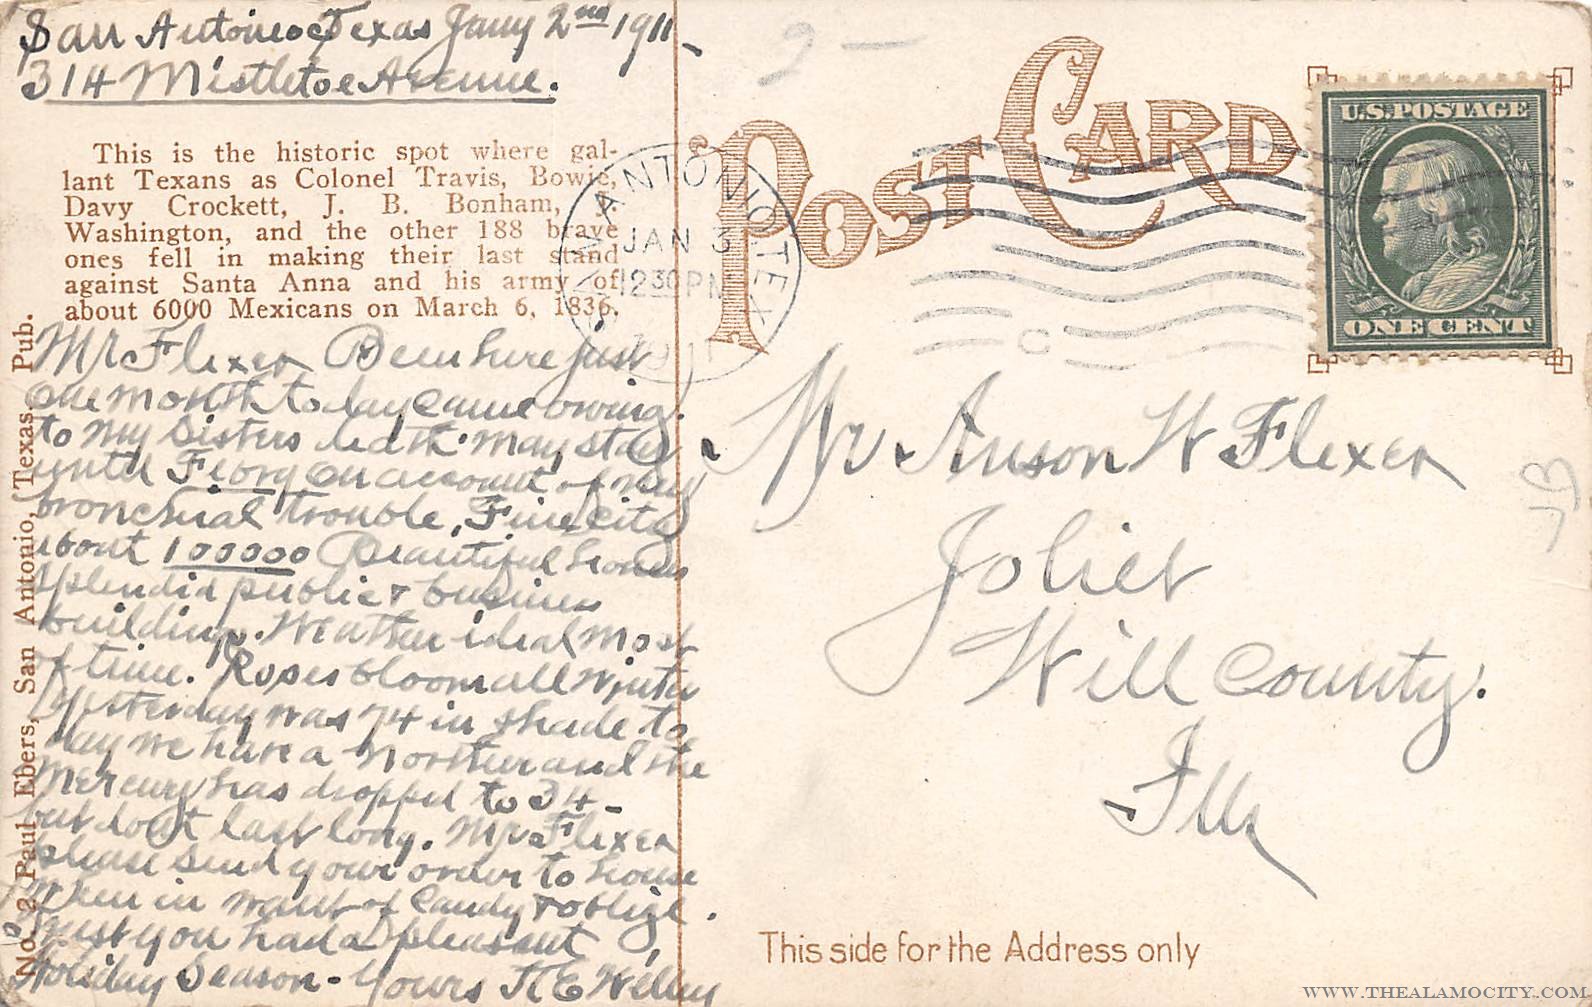 San Antonio Texas Jany 2nd 1911
314 Mistletoe Avenue.
This is the historic spot where gal-
lant Texans as Colonel Travis, Bowie,
Davy Crockett, J. B. Bonham, J.
Washington, and the other 188 brave
ones fell in making their last stand
against Santa Anna and his army of
about 6000 Mexicans on March 6, 1836.
Mr Flexer Been here just
one month today came owing
to my Sisters death. May stay
until on account of my
bronchial trouble, Fine City
about 100000 Beautiful homes
splendid public & business
buildings. Weather ideal most
of time. Roses bloom all winter
Yesterday was 74 in shade to
day we have a Norther and the
Mercury has dropped to 34 -
but dont last long. Mr Flexer
please send your order to house
When in want of Candy & oblige.
Trust you had a pleasant
Holiday Season - Yours
No. 2 Paul Ebers, San Antonio, Texas. Pub.
POST CARD
SAN ANTONIO, TEX.
JAN 3
12 30 PM
1911
C
U.S. POSTAGE
ONE CENT
2 -
Mr Anson W Flexer
Joliet
Will County.
Ills
This side for the Address only
WWW.THEALAMOCITY.COM